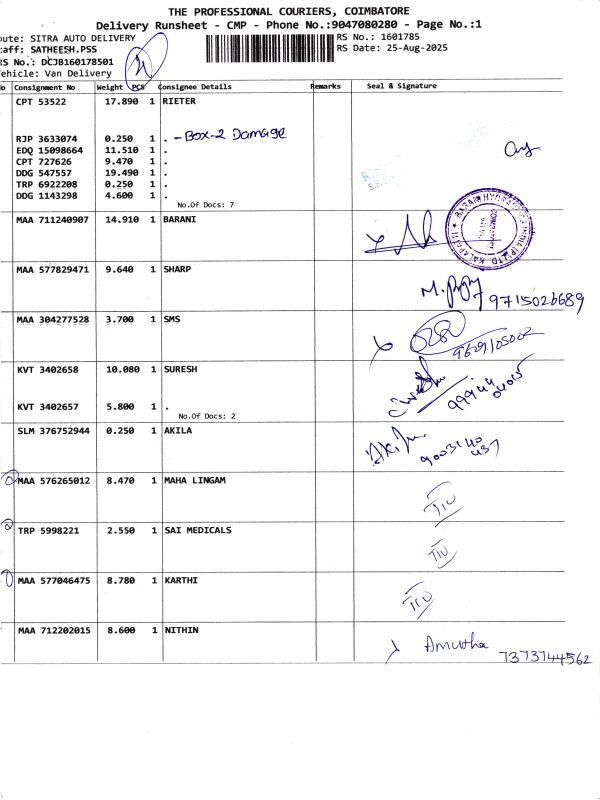 THE PROFESSIONAL COURIERS, COIMBATORE
Delivery Runsheet - CMP - Phone No.:9047080280 - Page No.:1
oute: SITRA AUTO DELIVERY
RS No.: 1601785
taff: SATHEESH.PSS
RS Date: 25-Aug-2025
RS No.: DCJB160178501
ehicle: Van Delivery
o Consignment No Weight PCS Consignee Details Remarks Seal & Signature
CPT 53522 17.890 1 RIETER
RJP 3633074 0.250 1 . - Box-2 Damage
EDQ 15098664 11.510 1 .
CPT 727626 9.470 1 .
DDG 547557 19.490 1 .
TRP 6922208 0.250 1 .
DDG 1143298 4.600 1 .
No.Of Docs: 7
MAA 711240907 14.910 1 BARANI
MAA 577829471 9.640 1 SHARP
9715026689
MAA 304277528 3.700 1 SMS
KVT 3402658 10.080 1 SURESH
KVT 3402657 5.800 1 .
No.Of Docs: 2
SLM 376752944 0.250 1 AKILA
MAA 576265012 8.470 1 MAHA LINGAM
TRP 5998221 2.550 1 SAI MEDICALS
MAA 577046475 8.780 1 KARTHI
MAA 712202015 8.600 1 NITHIN
Amutha
7373744562